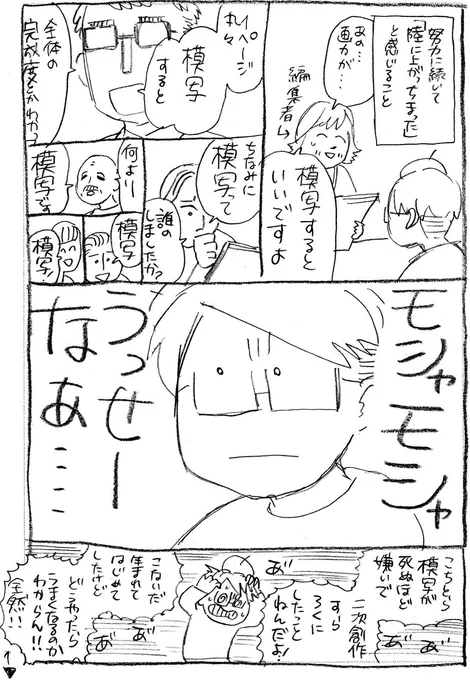 努力に続いて
「陸に上がっちまった」
と感じること
あの…
画力が…
編集者
模写すると
いいですよ
1ページ
丸々
模写
すると
全体の
完成度とかわかる
ちなみに
模写って
誰の
しましたか?
何より
模写です
模写
模写!
モシャモシャ
うっせー
なぁ…
こちとら
模写が
死ぬほど
嫌いで
あ゛
二次創作
すら
ろくに
したこと
ねんだよ!
あ゛
こないだ
生まれて
はじめて
したけど
あ゛
あ゛
どこやったら
うまくなるか
わからん!!
全然!!